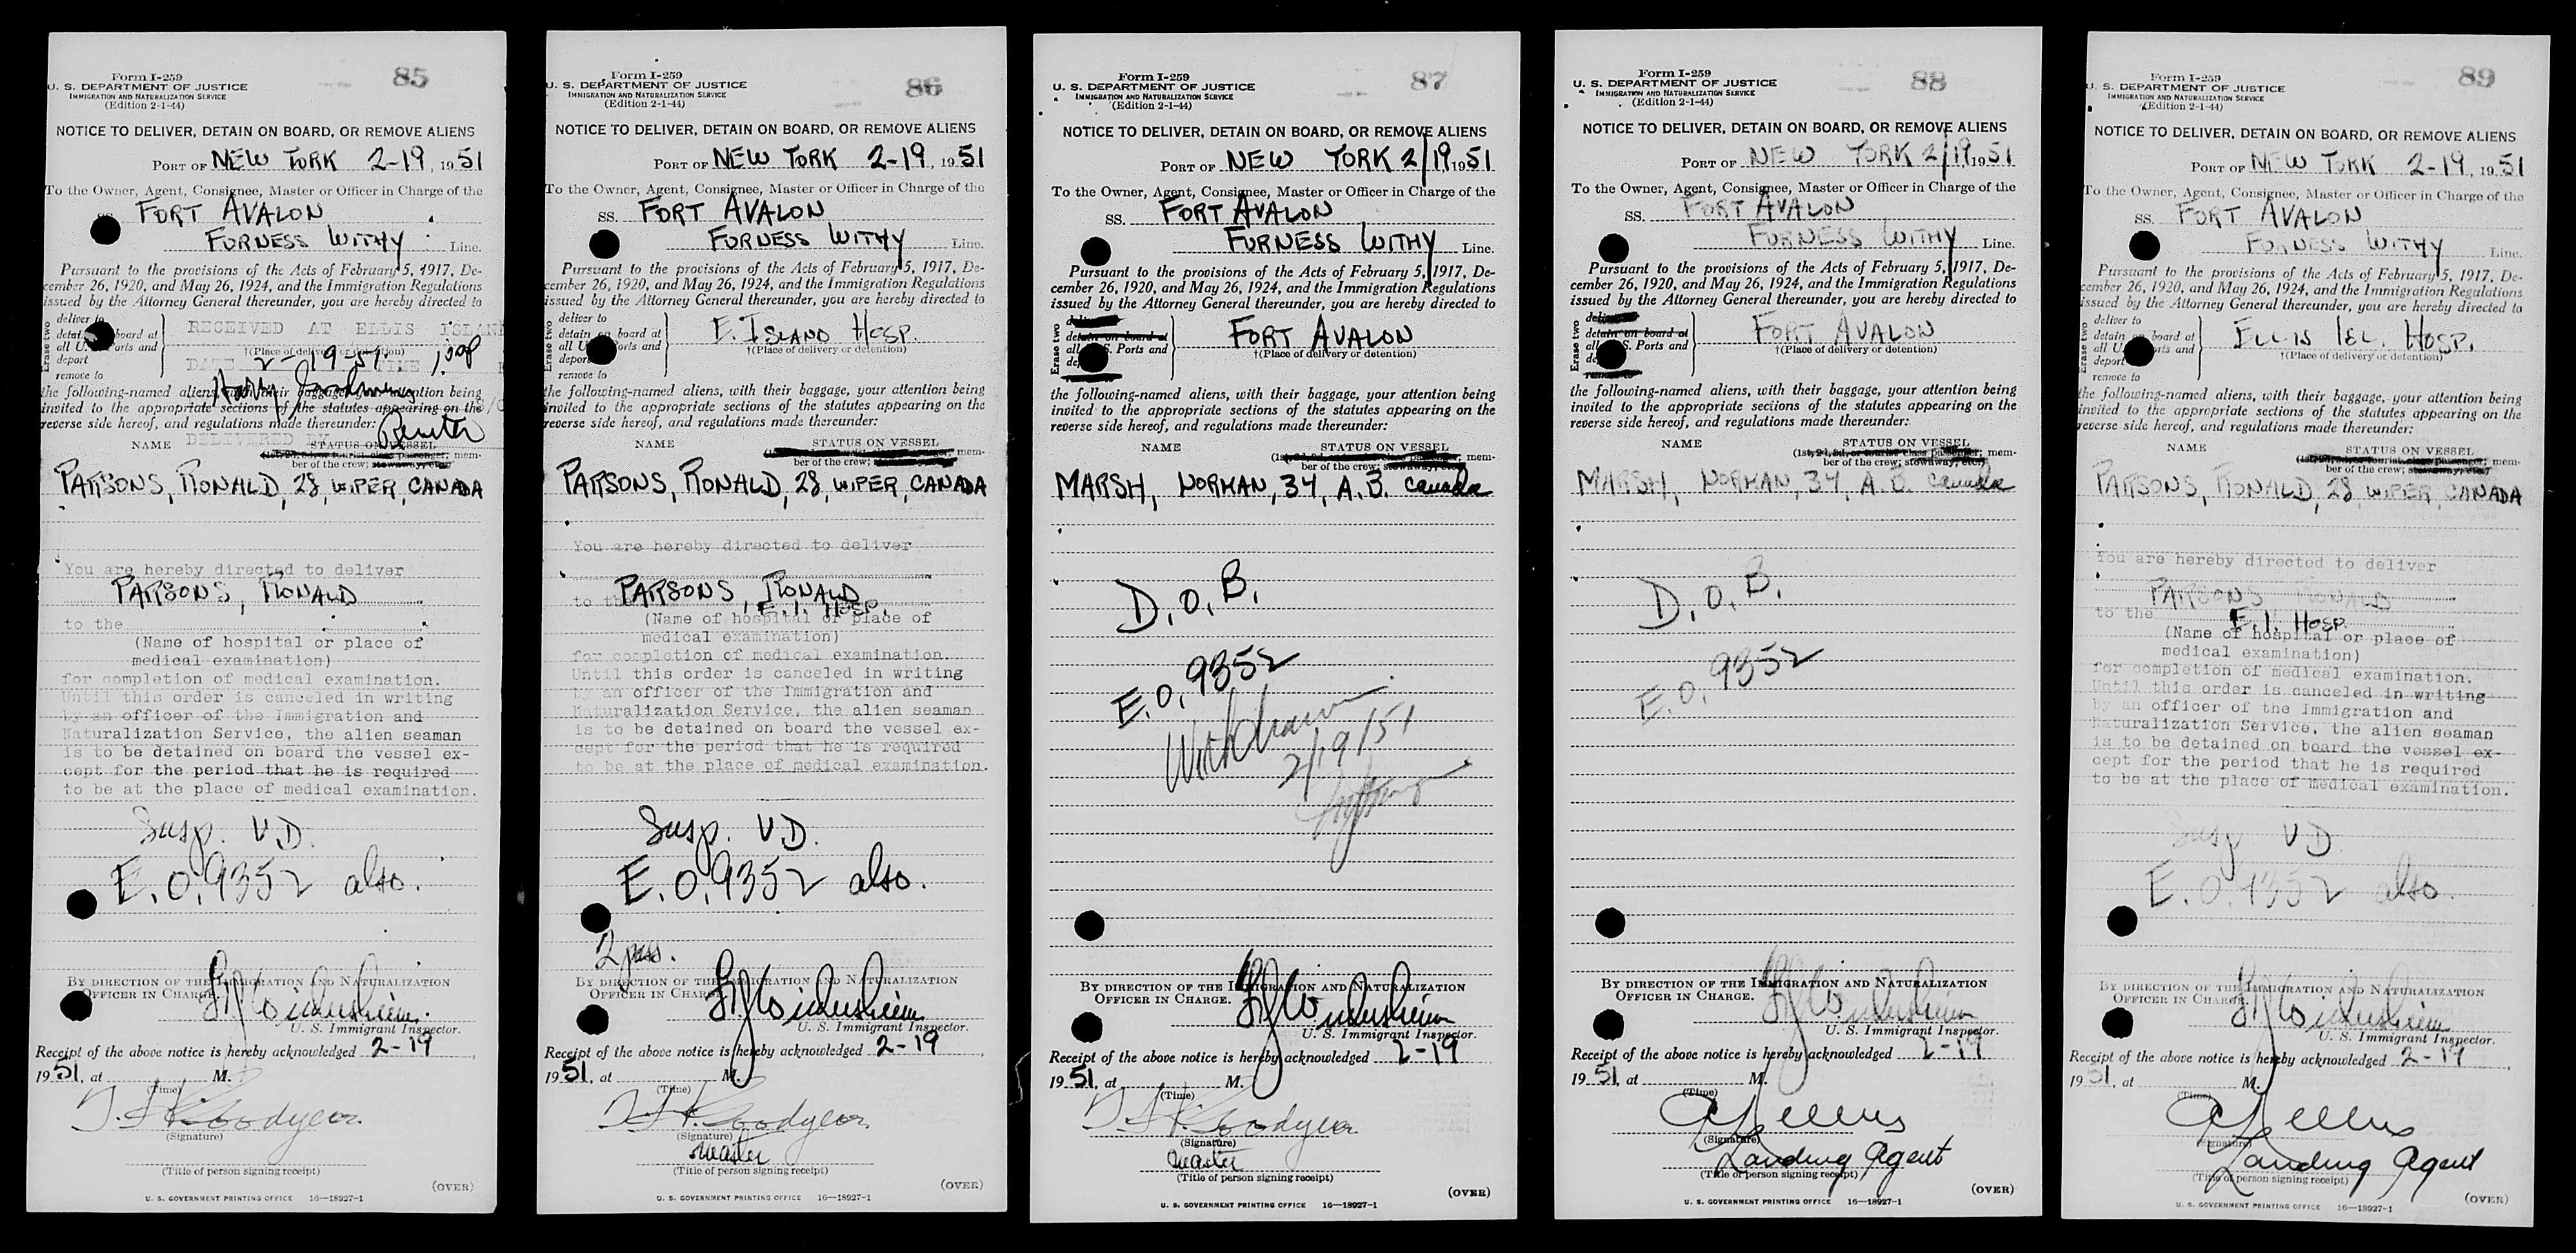 85
Form I-259
U. S. DEPARTMENT OF JUSTICE
IMMIGRATION AND NATURALIZATION SERVICE
(Edition 2-1-44)
NOTICE TO DELIVER, DETAIN ON BOARD, OR REMOVE ALIENS
PORT OF NEW YORK 2-19, 1951
To the Owner, Agent, Consignee, Master or Officer in Charge of the
SS. FORT AVALON
FURNESS WITHY Line.
Pursuant to the provisions of the Acts of February 5, 1917, De-
cember 26, 1920, and May 26, 1924, and the Immigration Regulations
issued by the Attorney General thereunder, you are hereby directed to
Erase two
deliver to
detain board at
all U. orts and
deport
remove to
RECEIVED AT ELLIS ISLAND
†(Place of delivery or detention)
DATE 2-19-51 TIME
the following-named aliens, with their baggage, your attention being
invited to the appropriate sections of the statutes appearing on the
reverse side hereof, and regulations made thereunder:
DELIVERED BY
NAME STATUS ON VESSEL
(1st, 2d, 3d, or tourist class passenger; mem-
ber of the crew; stowaway, etc.)
PARSONS, RONALD, 28, WIPER, CANADA
You are hereby directed to deliver
PARSONS, RONALD
to the
(Name of hospital or place of
medical examination)
for completion of medical examination.
Until this order is canceled in writing
by an officer of the Immigration and
Naturalization Service, the alien seaman
is to be detained on board the vessel ex-
cept for the period that he is required
to be at the place of medical examination.
Susp. V.D.
E.O. 9352 also.
BY DIRECTION OF THE IMMIGRATION AND NATURALIZATION
OFFICER IN CHARGE.
U. S. Immigrant Inspector.
Receipt of the above notice is hereby acknowledged 2-19
1951, at M.
(Time)
(Signature)
(Title of person signing receipt)
(OVER)
U. S. GOVERNMENT PRINTING OFFICE 16—18927-1
86
Form I-259
U. S. DEPARTMENT OF JUSTICE
IMMIGRATION AND NATURALIZATION SERVICE
(Edition 2-1-44)
NOTICE TO DELIVER, DETAIN ON BOARD, OR REMOVE ALIENS
PORT OF NEW YORK 2-19, 1951
To the Owner, Agent, Consignee, Master or Officer in Charge of the
SS. FORT AVALON
FURNESS WITHY Line.
Pursuant to the provisions of the Acts of February 5, 1917, De-
cember 26, 1920, and May 26, 1924, and the Immigration Regulations
issued by the Attorney General thereunder, you are hereby directed to
Erase two
deliver to
detain on board at
all U orts and
deport
remove to
E. ISLAND HOSP.
†(Place of delivery or detention)
the following-named aliens, with their baggage, your attention being
invited to the appropriate sections of the statutes appearing on the
reverse side hereof, and regulations made thereunder:
NAME STATUS ON VESSEL
mem-
ber of the crew;
PARSONS, RONALD, 28, WIPER, CANADA
You are hereby directed to deliver
PARSONS, RONALD
to the E.I. HOSP.
(Name of hospital or place of
medical examination)
for completion of medical examination.
Until this order is canceled in writing
by an officer of the Immigration and
Naturalization Service, the alien seaman
is to be detained on board the vessel ex-
cept for the period that he is required
to be at the place of medical examination.
Susp. V.D.
E.O. 9352 also.
BY DIRECTION OF THE IMMIGRATION AND NATURALIZATION
OFFICER IN CHARGE.
U. S. Immigrant Inspector.
Receipt of the above notice is hereby acknowledged 2-19
1951, at M.
(Time)
(Signature)
Master
(Title of person signing receipt)
(OVER)
U. S. GOVERNMENT PRINTING OFFICE 16—18927-1
87
Form I-259
U. S. DEPARTMENT OF JUSTICE
IMMIGRATION AND NATURALIZATION SERVICE
(Edition 2-1-44)
NOTICE TO DELIVER, DETAIN ON BOARD, OR REMOVE ALIENS
PORT OF NEW YORK 2/19, 1951
To the Owner, Agent, Consignee, Master or Officer in Charge of the
SS. FORT AVALON
FURNESS WITHY Line.
Pursuant to the provisions of the Acts of February 5, 1917, De-
cember 26, 1920, and May 26, 1924, and the Immigration Regulations
issued by the Attorney General thereunder, you are hereby directed to
Erase two
detain on board at
all S. Ports and
FORT AVALON
†(Place of delivery or detention)
the following-named aliens, with their baggage, your attention being
invited to the appropriate sections of the statutes appearing on the
reverse side hereof, and regulations made thereunder:
NAME STATUS ON VESSEL
(1st, mem-
ber of the crew; stowaway, etc.)
MARSH, NORMAN, 34, A.B. Canada
D.O.B.
E.O. 9352
Withdrawn
2/19/51
BY DIRECTION OF THE IMMIGRATION AND NATURALIZATION
OFFICER IN CHARGE.
U. S. Immigrant Inspector.
Receipt of the above notice is hereby acknowledged 2-19
1951, at M.
(Time)
(Signature)
Master
(Title of person signing receipt)
(OVER)
U. S. GOVERNMENT PRINTING OFFICE 16—18927-1
88
Form I-259
U. S. DEPARTMENT OF JUSTICE
IMMIGRATION AND NATURALIZATION SERVICE
(Edition 2-1-44)
NOTICE TO DELIVER, DETAIN ON BOARD, OR REMOVE ALIENS
PORT OF NEW YORK 2/19, 1951
To the Owner, Agent, Consignee, Master or Officer in Charge of the
SS. FORT AVALON
FURNESS WITHY Line.
Pursuant to the provisions of the Acts of February 5, 1917, De-
cember 26, 1920, and May 26, 1924, and the Immigration Regulations
issued by the Attorney General thereunder, you are hereby directed to
Erase two
detain on board at
all S. Ports and
FORT AVALON
†(Place of delivery or detention)
the following-named aliens, with their baggage, your attention being
invited to the appropriate sections of the statutes appearing on the
reverse side hereof, and regulations made thereunder:
NAME STATUS ON VESSEL
(1st, 2d, 3d, or tourist class passenger; mem-
ber of the crew; stowaway, etc.)
MARSH, NORMAN, 34, A.B. Canada
D.O.B.
E.O. 9352
BY DIRECTION OF THE IMMIGRATION AND NATURALIZATION
OFFICER IN CHARGE.
U. S. Immigrant Inspector.
Receipt of the above notice is hereby acknowledged 2-19
1951, at M.
(Time)
(Signature)
Landing Agent
(Title of person signing receipt)
(OVER)
U. S. GOVERNMENT PRINTING OFFICE 16—18927-1
89
Form I-259
U. S. DEPARTMENT OF JUSTICE
IMMIGRATION AND NATURALIZATION SERVICE
(Edition 2-1-44)
NOTICE TO DELIVER, DETAIN ON BOARD, OR REMOVE ALIENS
PORT OF NEW YORK 2-19, 1951
To the Owner, Agent, Consignee, Master or Officer in Charge of the
SS. FORT AVALON
FURNESS WITHY Line.
Pursuant to the provisions of the Acts of February 5, 1917, De-
cember 26, 1920, and May 26, 1924, and the Immigration Regulations
issued by the Attorney General thereunder, you are hereby directed to
Erase two
deliver to
detain board at
all U rts and
deport
remove to
ELLIS ISL. HOSP.
†(Place of delivery or detention)
the following-named aliens, with their baggage, your attention being
invited to the appropriate sections of the statutes appearing on the
reverse side hereof, and regulations made thereunder:
NAME STATUS ON VESSEL
(1st, 2d, 3d, or tourist class passenger; mem-
ber of the crew; stowaway, etc.)
PARSONS, RONALD, 28, WIPER, CANADA
You are hereby directed to deliver
PARSONS RONALD
to the E.I. HOSP.
(Name of hospital or place of
medical examination)
for completion of medical examination.
Until this order is canceled in writing
by an officer of the Immigration and
Naturalization Service, the alien seaman
is to be detained on board the vessel ex-
cept for the period that he is required
to be at the place of medical examination.
Susp V.D
E.O. 9352 also.
BY DIRECTION OF THE IMMIGRATION AND NATURALIZATION
OFFICER IN CHARGE.
U. S. Immigrant Inspector.
Receipt of the above notice is hereby acknowledged 2-19
1951, at M.
(Time)
(Signature)
Landing Agent
(Title of person signing receipt)
(OVER)
U. S. GOVERNMENT PRINTING OFFICE 16—18927-1